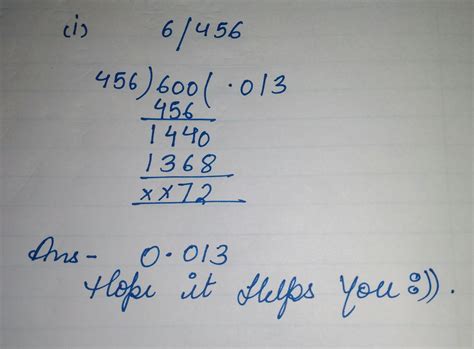 (i) 6/456
456)600(.013
456
1440
1368
××72
Ans - 0.013
Hope it Helps You :)).